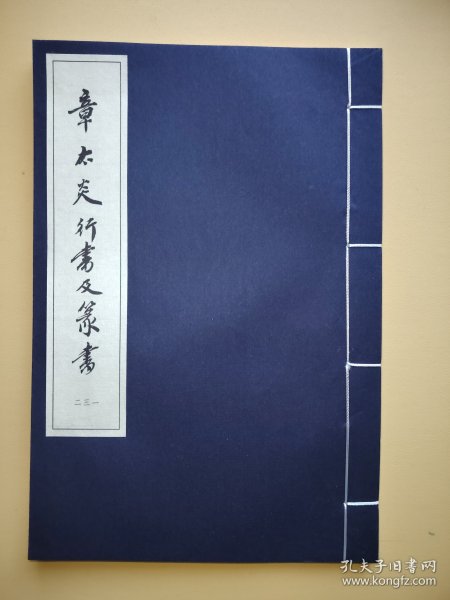 章太炎行书及篆書
二三一
孔夫子旧书网
www.kongfz.com